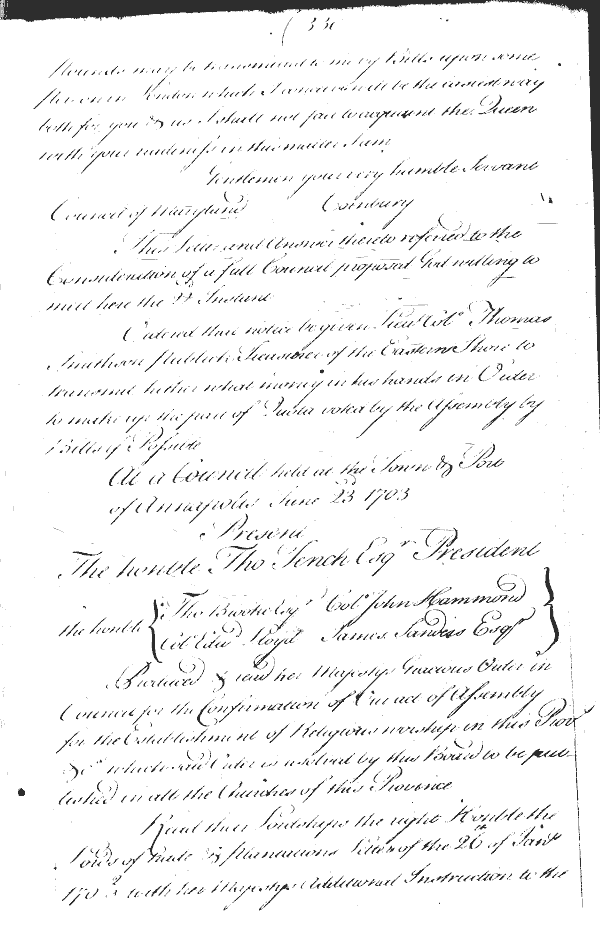 (330
Pounds may be transmitted to me by Bills upon some
Person in London which I conceive will be the easiest way
both for you & us I shall not fail to acquaint the Queen
with your readiness in this matter I am
Gentlemen your very humble Servant
Council of Maryland Cornbury
This Letter and Answer thereto referred to the
Consideration of a full Council proposed God willing to
meet here the Instant
Ordered that notice be given Lieut Colo Thomas
Smithson Publick Treasurer of the Eastern Shore to
transmit hither what money in his hands in Order
to make up the part of Quota voted by the Assembly by
Bills if Possible
At a Council held at the Town & Port
of Annapolis June 23 1703
Present
The honble Tho Tench Esqr President
the honble { Tho Brooke Esqr Colo John Hammond }
Col Edwd Lloyd James Sanders Esqr
Produced & read her Majestys Gracious Order in
Council for the Confirmation of Our act of Assembly
for the Establishment of Religious worship in this Provce
&c which said Order is resolved by this Board to be pub
lished in all the Churches of this Province
Read their Lordships the right Honble the
Lords of Trade & Plantations Letter of the 26th of Janry
1702/3 with her Majestys Additional Instruction to the